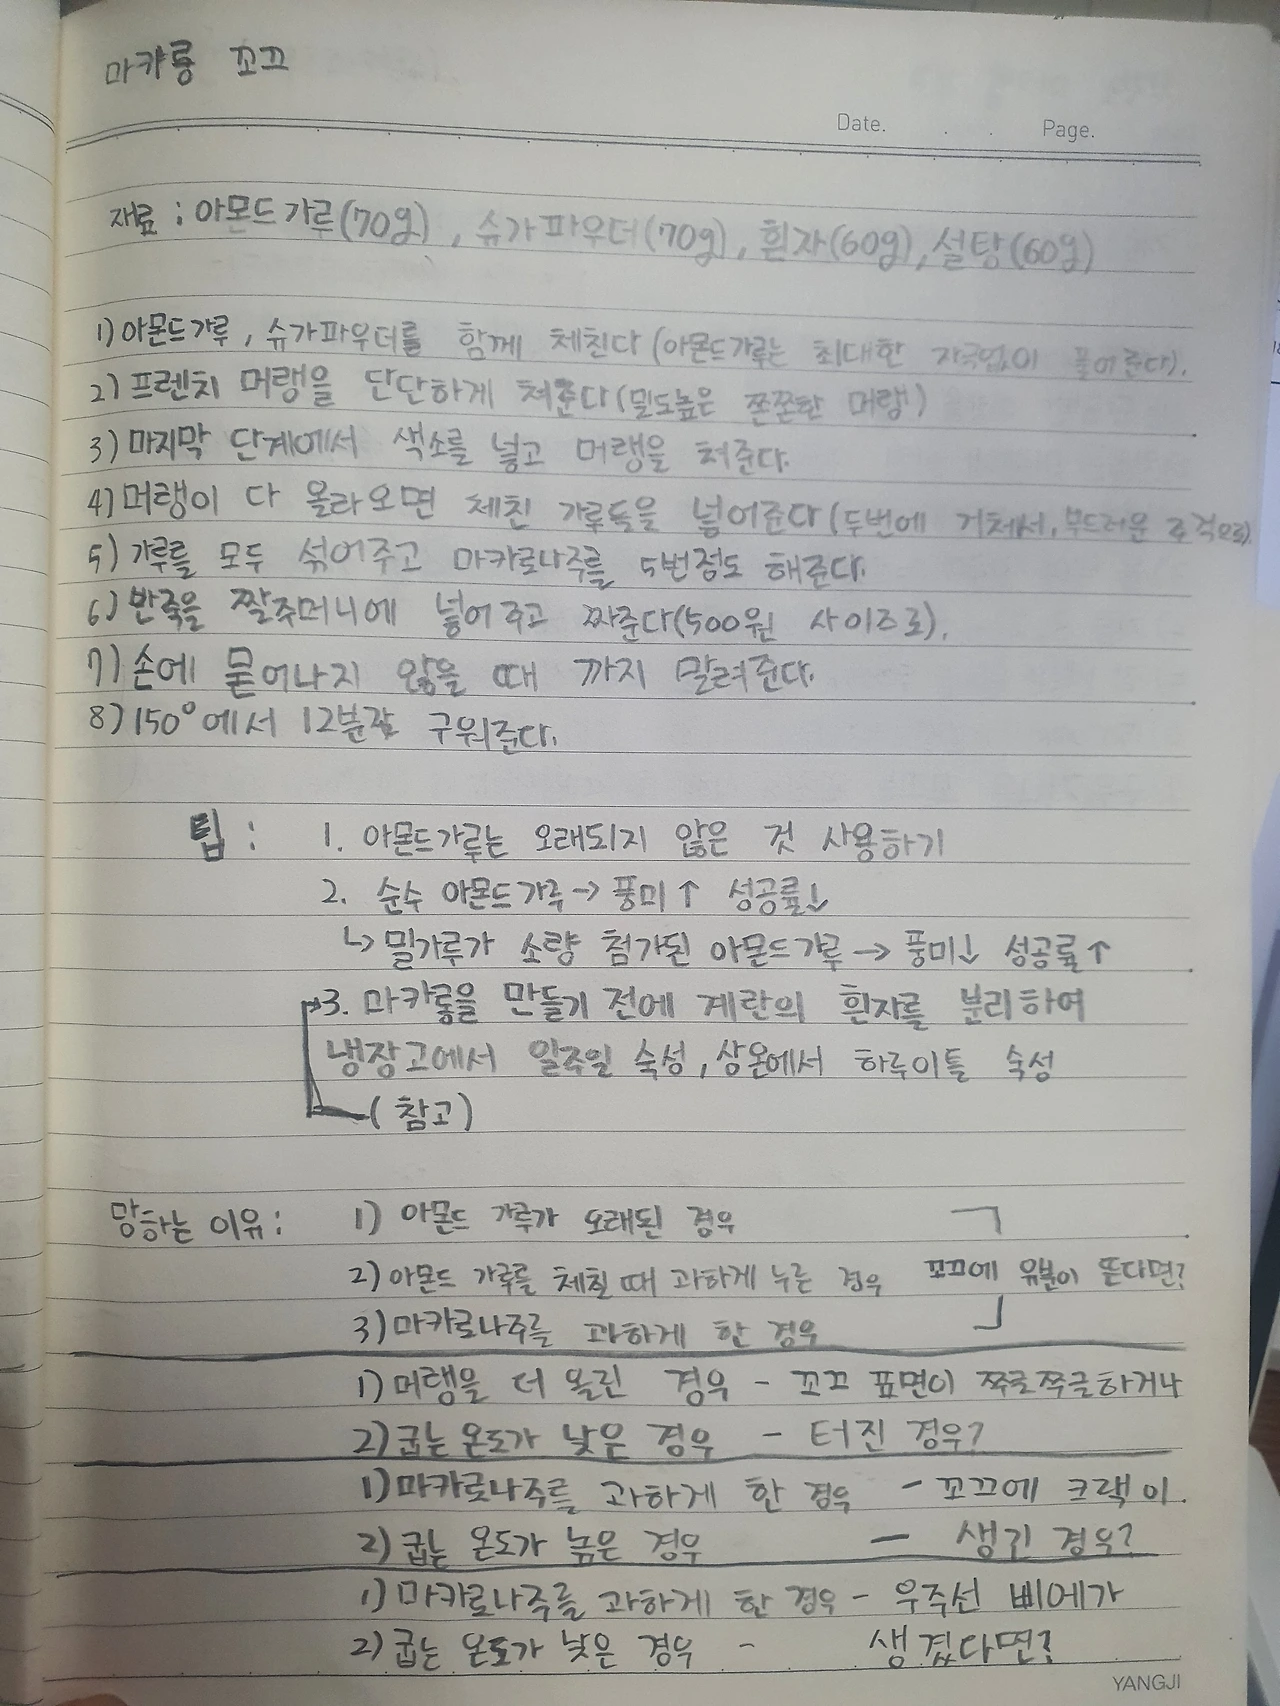 마카롱 꼬끄
Date. . . Page.
재료 : 아몬드가루(70g), 슈가파우더(70g), 흰자(60g), 설탕(60g)
1) 아몬드가루, 슈가파우더를 함께 체친다 (아몬드가루는 최대한 자극없이 풀어준다).
2) 프렌치 머랭을 단단하게 쳐준다 (밀도높은 쫀쫀한 머랭)
3) 마지막 단계에서 색소를 넣고 머랭을 쳐준다.
4) 머랭이 다 올라오면 체친 가루들을 넣어준다 (두번에 거쳐서, 부드러운 조각으로).
5) 가루를 모두 섞어주고 마카로나주를 5번정도 해준다.
6) 반죽을 짤주머니에 넣어주고 짜준다(500원 사이즈로).
7) 손에 묻어나지 않을 때 까지 말려준다.
8) 150°에서 12분간 구워준다.
팁 : 1. 아몬드가루는 오래되지 않은 것 사용하기
2. 순수 아몬드가루 → 풍미↑ 성공률↓
↳ 밀가루가 소량 첨가된 아몬드가루 → 풍미↓ 성공률↑
3. 마카롱을 만들기 전에 계란의 흰자를 분리하여
냉장고에서 일주일 숙성, 상온에서 하루이틀 숙성
(참고)
망하는 이유 : 1) 아몬드 가루가 오래된 경우
2) 아몬드 가루를 체칠 때 과하게 누른 경우 꼬끄에 유분이 뜬다면?
3) 마카로나주를 과하게 한 경우
1) 머랭을 더 올린 경우 - 꼬끄 표면이 쭈글쭈글하거나
2) 굽는 온도가 낮은 경우 - 터진 경우?
1) 마카로나주를 과하게 한 경우 - 꼬끄에 크랙이
2) 굽는 온도가 높은 경우 - 생긴 경우?
1) 마카로나주를 과하게 한 경우 - 우주선 삐에가
2) 굽는 온도가 낮은 경우 - 생겼다면?
YANGJI